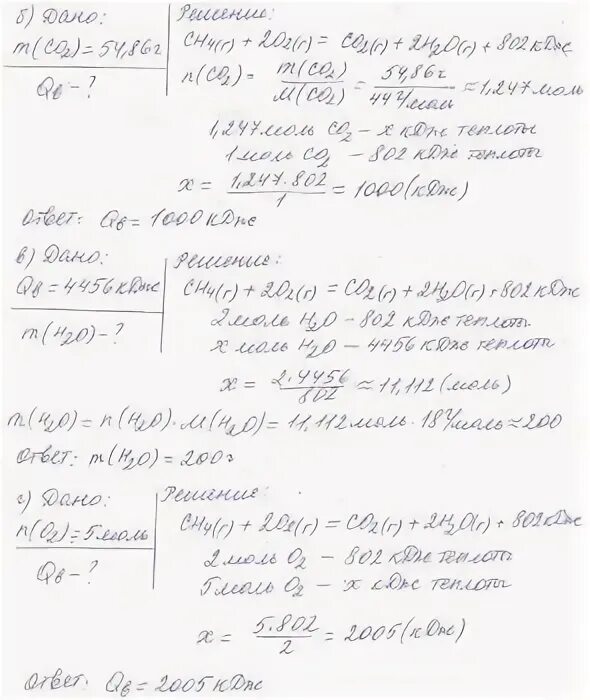 б) Дано:
m(CO2)=54,86г
Qв-?
Решение:
CH4(г)+2O2(г)=CO2(г)+2H2O(г)+802кДж
n(CO2)= m(CO2)/M(CO2) = 54,86г/44г/моль ≈1,247моль
1,247моль CO2-x кДж теплоты
1моль CO2 -802 кДж теплоты
x= 1,247·802/1 =1000(кДж)
Ответ: Qв=1000кДж
в) Дано:
Qв=4456кДж
m(H2O)-?
Решение:
CH4(г)+2O2(г)=CO2(г)+2H2O(г)+802кДж
2моль H2O-802 кДж теплоты
x моль H2O-4456 кДж теплоты
x= 2·4456/802 ≈11,112(моль)
m(H2O)=n(H2O)·M(H2O)=11,112моль·18г/моль≈200
Ответ: m(H2O)=200г
г) Дано:
n(O2)=5моль
Qв-?
Решение:
CH4(г)+2O2(г)=CO2(г)+2H2O(г)+802кДж
2моль O2-802 кДж теплоты
5моль O2-x кДж теплоты
x= 5·802/2 =2005(кДж)
Ответ: Qв=2005кДж